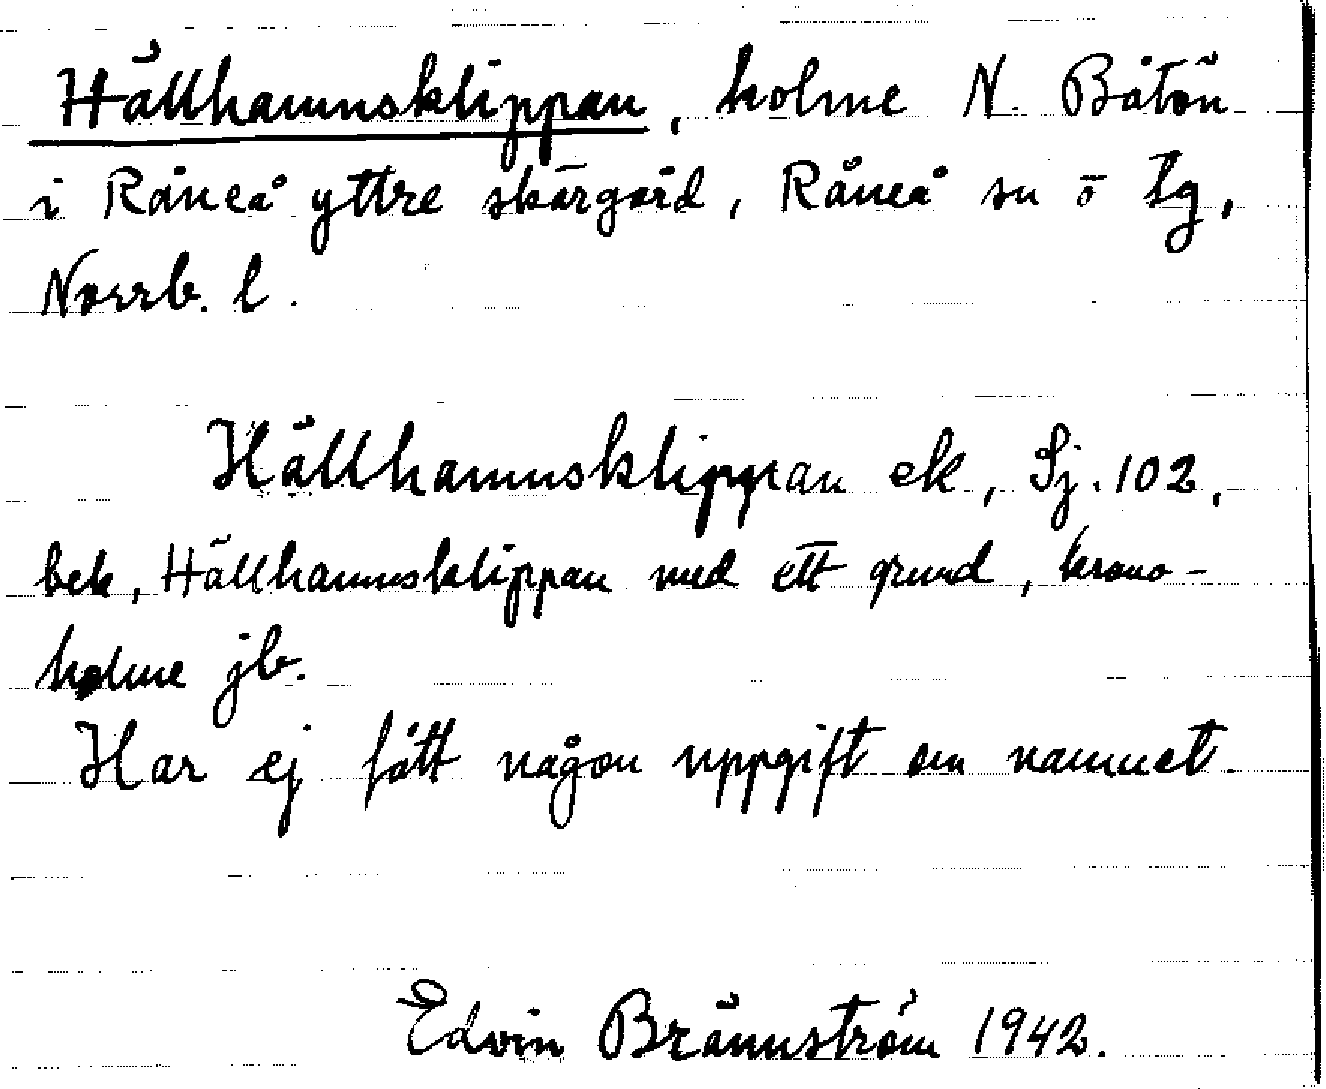 Hällhamnsklippan, holme N. Båtön
i Råneå yttre skärgård, Råneå sn o tg,
Norrb. l.
Hällhamnsklippan ek, Sj. 102,
bek, Hällhamnsklippan med ett grund, krono-
holme jb.
Har ej fått någon uppgift om namnet.
Edvin Brännström 1942.